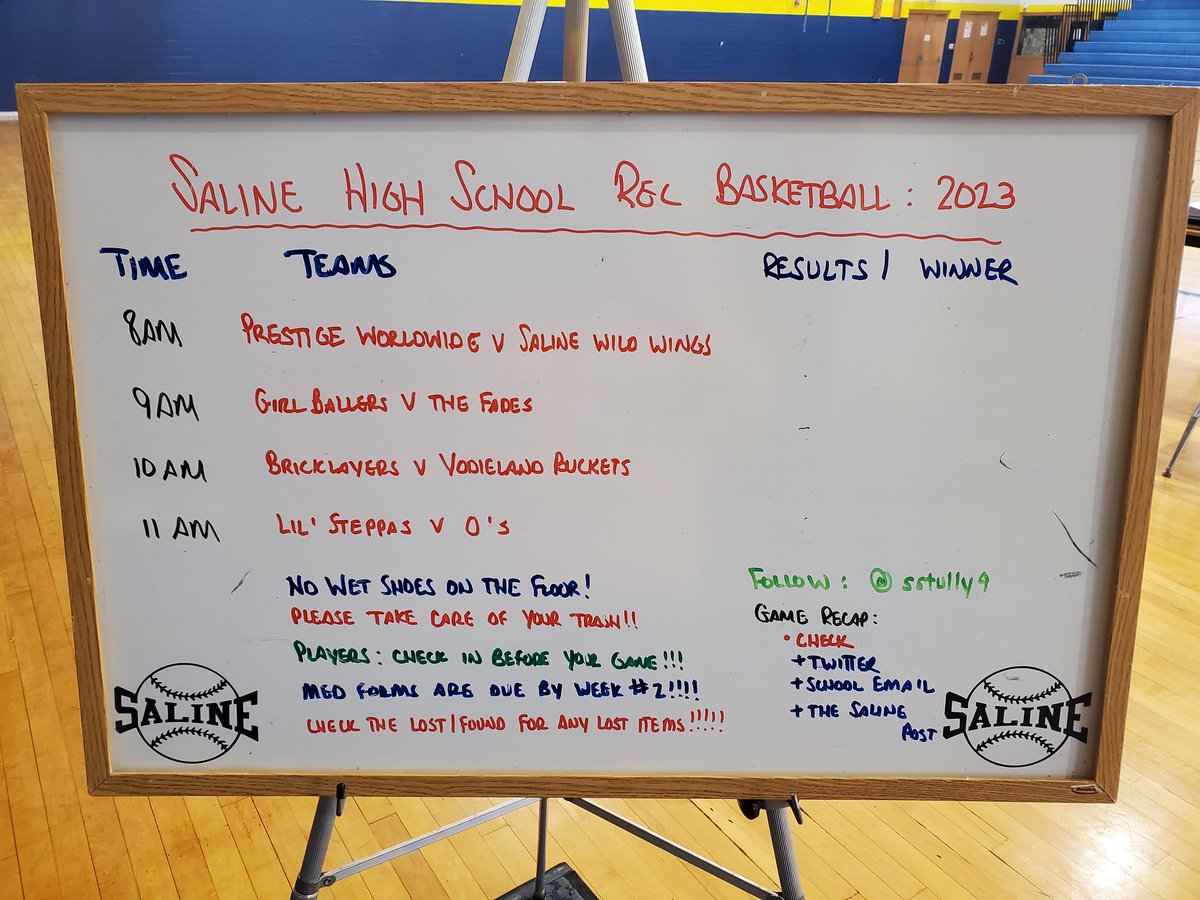 SALINE HIGH SCHOOL REC BASKETBALL: 2023
TIME TEAMS RESULTS / WINNER
8AM PRESTIGE WORLDWIDE V SALINE WILD WINGS
9AM GIRL BALLERS V THE FADES
10AM BRICKLAYERS V VODIELAND BUCKETS
11AM LIL' STEPPAS V O'S
NO WET SHOES ON THE FLOOR!
PLEASE TAKE CARE OF YOUR TRASH!!
PLAYERS: CHECK IN BEFORE YOUR GAME!!!
MED FORMS ARE DUE BY WEEK #2!!!!
CHECK THE LOST/FOUND FOR ANY LOST ITEMS!!!!!
FOLLOW: @sstully9
GAME RECAP:
• CHECK
+ TWITTER
+ SCHOOL EMAIL
+ THE SALINE
POST
SALINE
SALINE